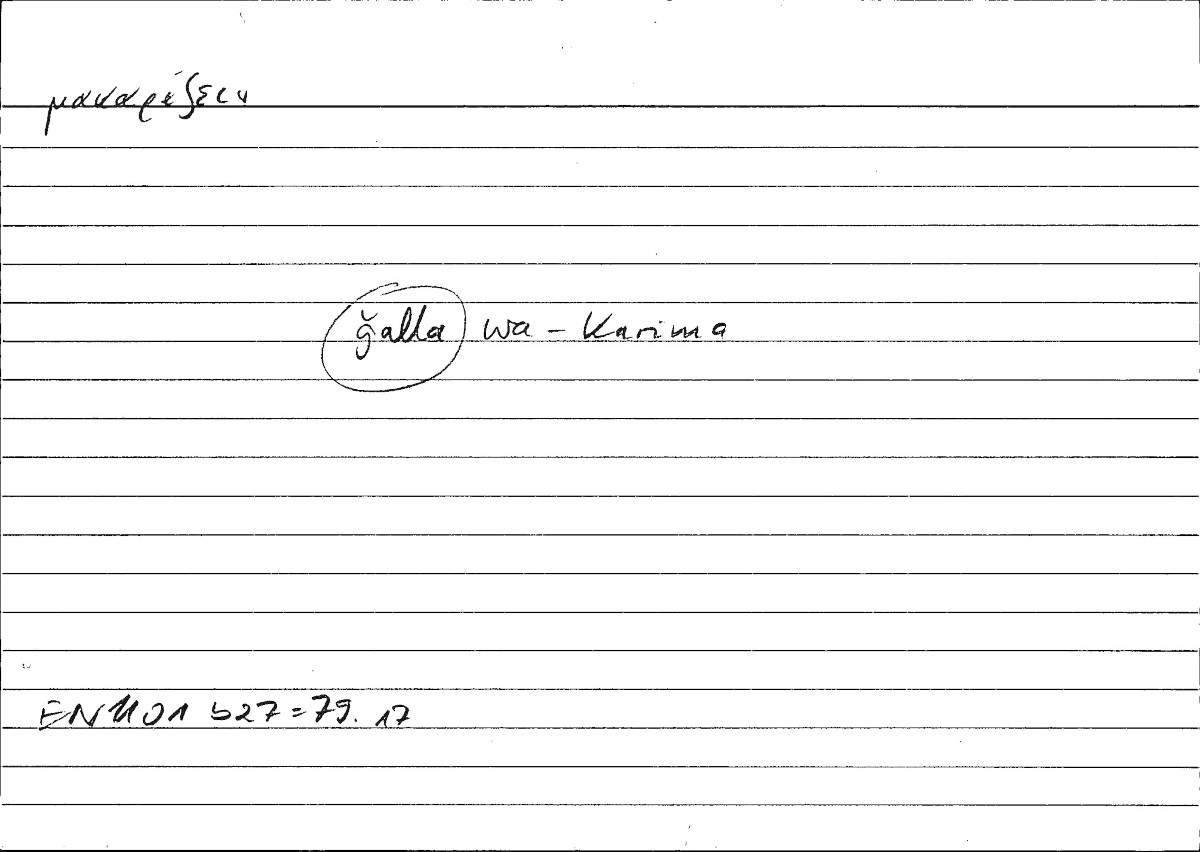 μακαρίζειν
ǧalla wa - Karima
EN 1101 b27 = 79. 17